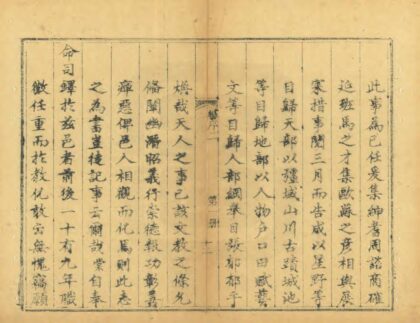 此事為已任爰集紳耆周諮商確
延班馬之才集歐蘇之彥相與展
案措事閱三月而告成以星野等
目歸天部以疆域山川古蹟城池
等目歸地部以人物戶口田賦藝
文等目歸人部綱舉目張郁郁乎
煥哉天人之事已該文教之條允
備闡幽潛昭義行崇德報功彰善
癉惡俾邑人相觀而化焉則此志
之為書豈徒記事云爾哉堂自奉
命司鐸於茲邑者前後一十有九年職
微任重而於教化敢云無愧蓋願